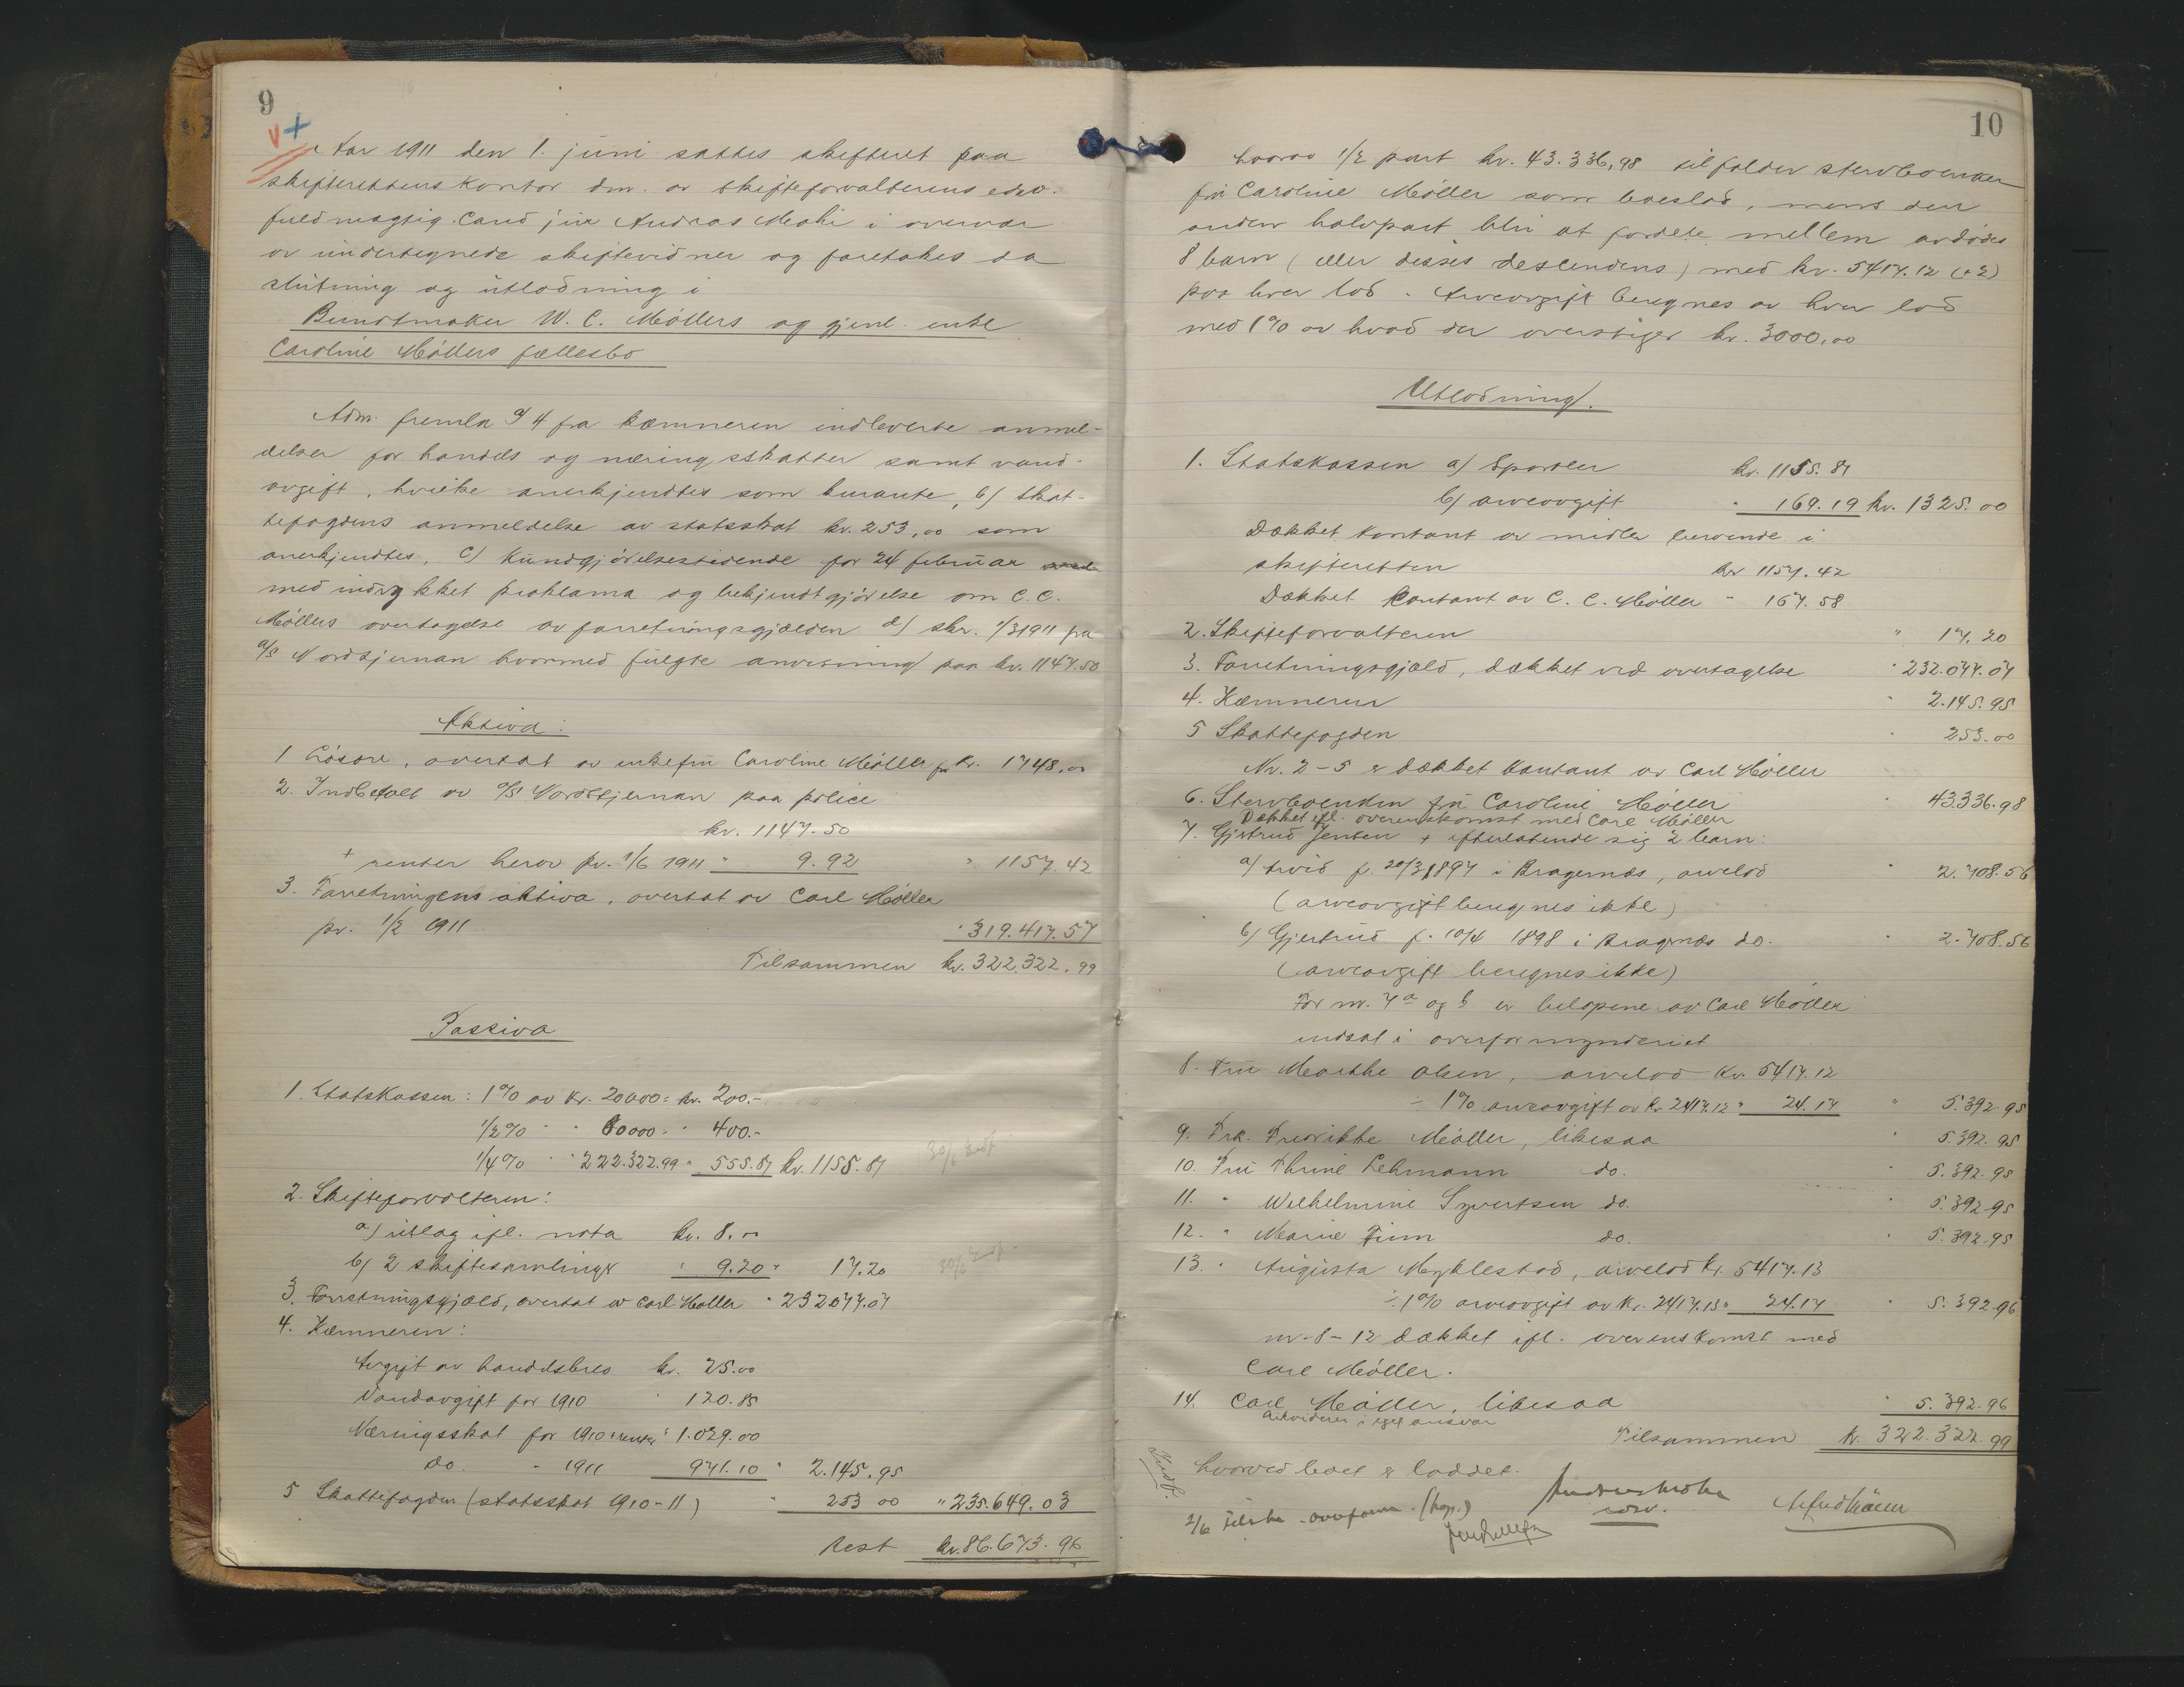 9
Aar 1911 den 1. juni sattes skifteret paa
skifterettens kontor adm. av skifteforvalterens edsv.
fuldmægtig cand jur Andreas Mohr i overvær
av undertegnede skiftevidner og foretokes da
slutning og utlodning i
Bundtmaker W. C. Möllers og gjenl. enke
Caroline Möllers fællesbo
Adm. fremla a/ 4 fra kæmneren indleverte anmel-
delser for handels og næringsskatter samt vand-
avgift, hvilke anerkjendtes som kurante, b/ skat-
tefogdens anmeldelse av statsskat kr. 253,00 som
anerkjendtes, c/ Kundgjörelsestidende for 24 februar
med indrykket proklama og bekjendtgjörelse om C. C.
Möllers overtagelse av forretningsgjælden d/ skr. 1/3 1911 fra
a/s Nordstjernan hvormed fulgte anvisning paa kr. 1147.50
Aktiva:
1 Lösöre, overtat av enkefru Caroline Möller for kr. 1748,00
2. Indbetalt av a/s Nordstjernan paa police
kr. 1147.50
+ renter herav pr. 1/6 1911 " 9.92 " 1157.42
3. Forretningens aktiva, overtat av Carl Möller
pr. 1/2 1911 " 319.417.57
Tilsammen kr. 322.322.99
Passiva
1. Statskassen: 1% av kr. 20000 = kr. 200.-
1/2% " " 80000 = " 400.-
1/4% " " 222.322.99 " 555.81 kr. 1155.81
2. Skifteforvalteren:
a) utlag ifl. nota kr. 8.00
b) 2 skiftesamlinger " 9.20 " 17.20
3. Forretningsgjæld, overtat av Carl Möller " 232077.07
4. Kæmneren:
Avgift av handelsbrev kr. 25.00
Vandavgift for 1910 " 120.85
Næringsskat for 1910 + renter " 1.029.00
do. " 1911 971.10 " 2.145.95
5 Skattefogden (statsskat 1910-11) " 253 00 " 235.649.03
Rest kr. 86.673.96
10
hvorav 1/2 part kr. 43.336,98 tilfalder stervboenken
fru Caroline Möller som boeslod, mens den
anden halvpart blir at fordele mellem avdödes
8 barn (eller disses descendens) med kr. 5417.12 (+2)
paa hver lod. Arveavgift beregnes av hver lod
med 1% av hvad der overstiger kr. 3000,00
Utlodning.
1. Statskassen a) Sportler kr. 1155.81
b) arveavgift " 169.19 kr. 1325.00
Dækket kontant av midler beroende i
skifteretten kr 1157.42
Dækket kontant av C. C. Möller " 167.58
2. Skifteforvalteren " 17.20
3. Forretningsgjæld, dækket ved overtagelse " 232.077.07
4. Kæmneren " 2.145.95
5 Skattefogden " 253.00
Nr. 2-5 er dækket kontant av Carl Möller
6. Stervboenken fru Caroline Möller " 43.336.98
Dækket ifl. overenskomst med Carl Möller
7. Gjertrud Jensen + efterlatende sig 2 barn:
a) Arvid f. 20/3 1897 i Bragernes, arvelod " 2.708.56
(arveavgift beregnes ikke)
b) Gjertrud f. 10/4 1898 i Bragernes do. " 2.708.56
(arveavgift beregnes ikke)
For nr. 7 a og b er belöpene av Carl Möller
indsat i overformynderiet
8. Fru Marthe Olsen, arvelod kr. 5417.12
÷ 1% arveavgift av kr 2417.12 " 24.17 " 5.392.95
9. Frk. Fredrikke Möller, likesaa " 5.392.95
10. Fru Thrine Lehmann do. " 5.392.95
11. " Wilhelmine Syvertsen do. " 5.392.95
12. " Marie Finn do. " 5.392.95
13. " Augusta Myklestad, arvelod kr. 5417.13
÷ 1% arveavgift av kr. 2417.13 " 24.17 " 5.392.96
nr. 8-12 dækket ifl. overenskomst med
Carl Möller.
14. Carl Möller, likesaa " 5.392.96
i eget ansvar
Tilsammen kr. 322.322.99
hvorved boet er loddet.
Andreas Mohr
edsv.
2/6